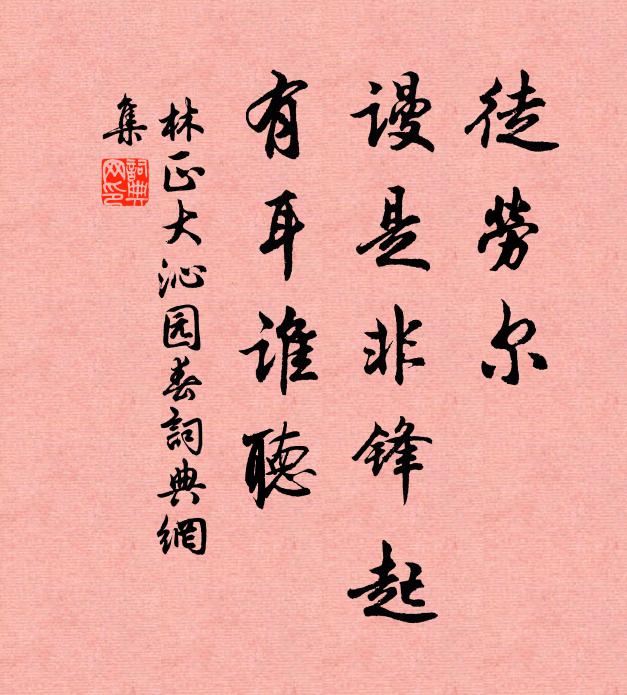 徒勞尔
谩是非锋起
有耳谁聽
林正大沁园春詞典網
集
詞典网印